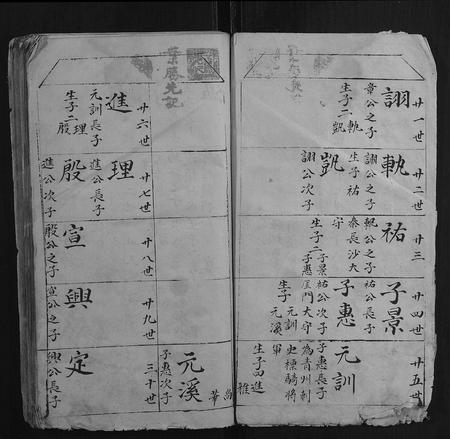 廿一世
詡
章公之子
生子二 軌 凱
廿二世
軌
詡公之子
生子祐
凱
詡公次子
廿三
祐
軌公之子
秦長沙大
守
生子二 子景 子惠
廿四世
子景
祐公長子
子惠
祐公次子
生子 元訓 元溪
廿五世
元訓
子惠長子
為青州刺
史標騎將
軍
生子四 進
葉勝先記
廿六世
進
元訓長子
生子二 理 殷
廿七世
理
進公長子
殷
進公次子
廿八世
宣
殷公之子
廿九世
興
宣公之子
三十世
元溪
子惠次子
定
興公長子